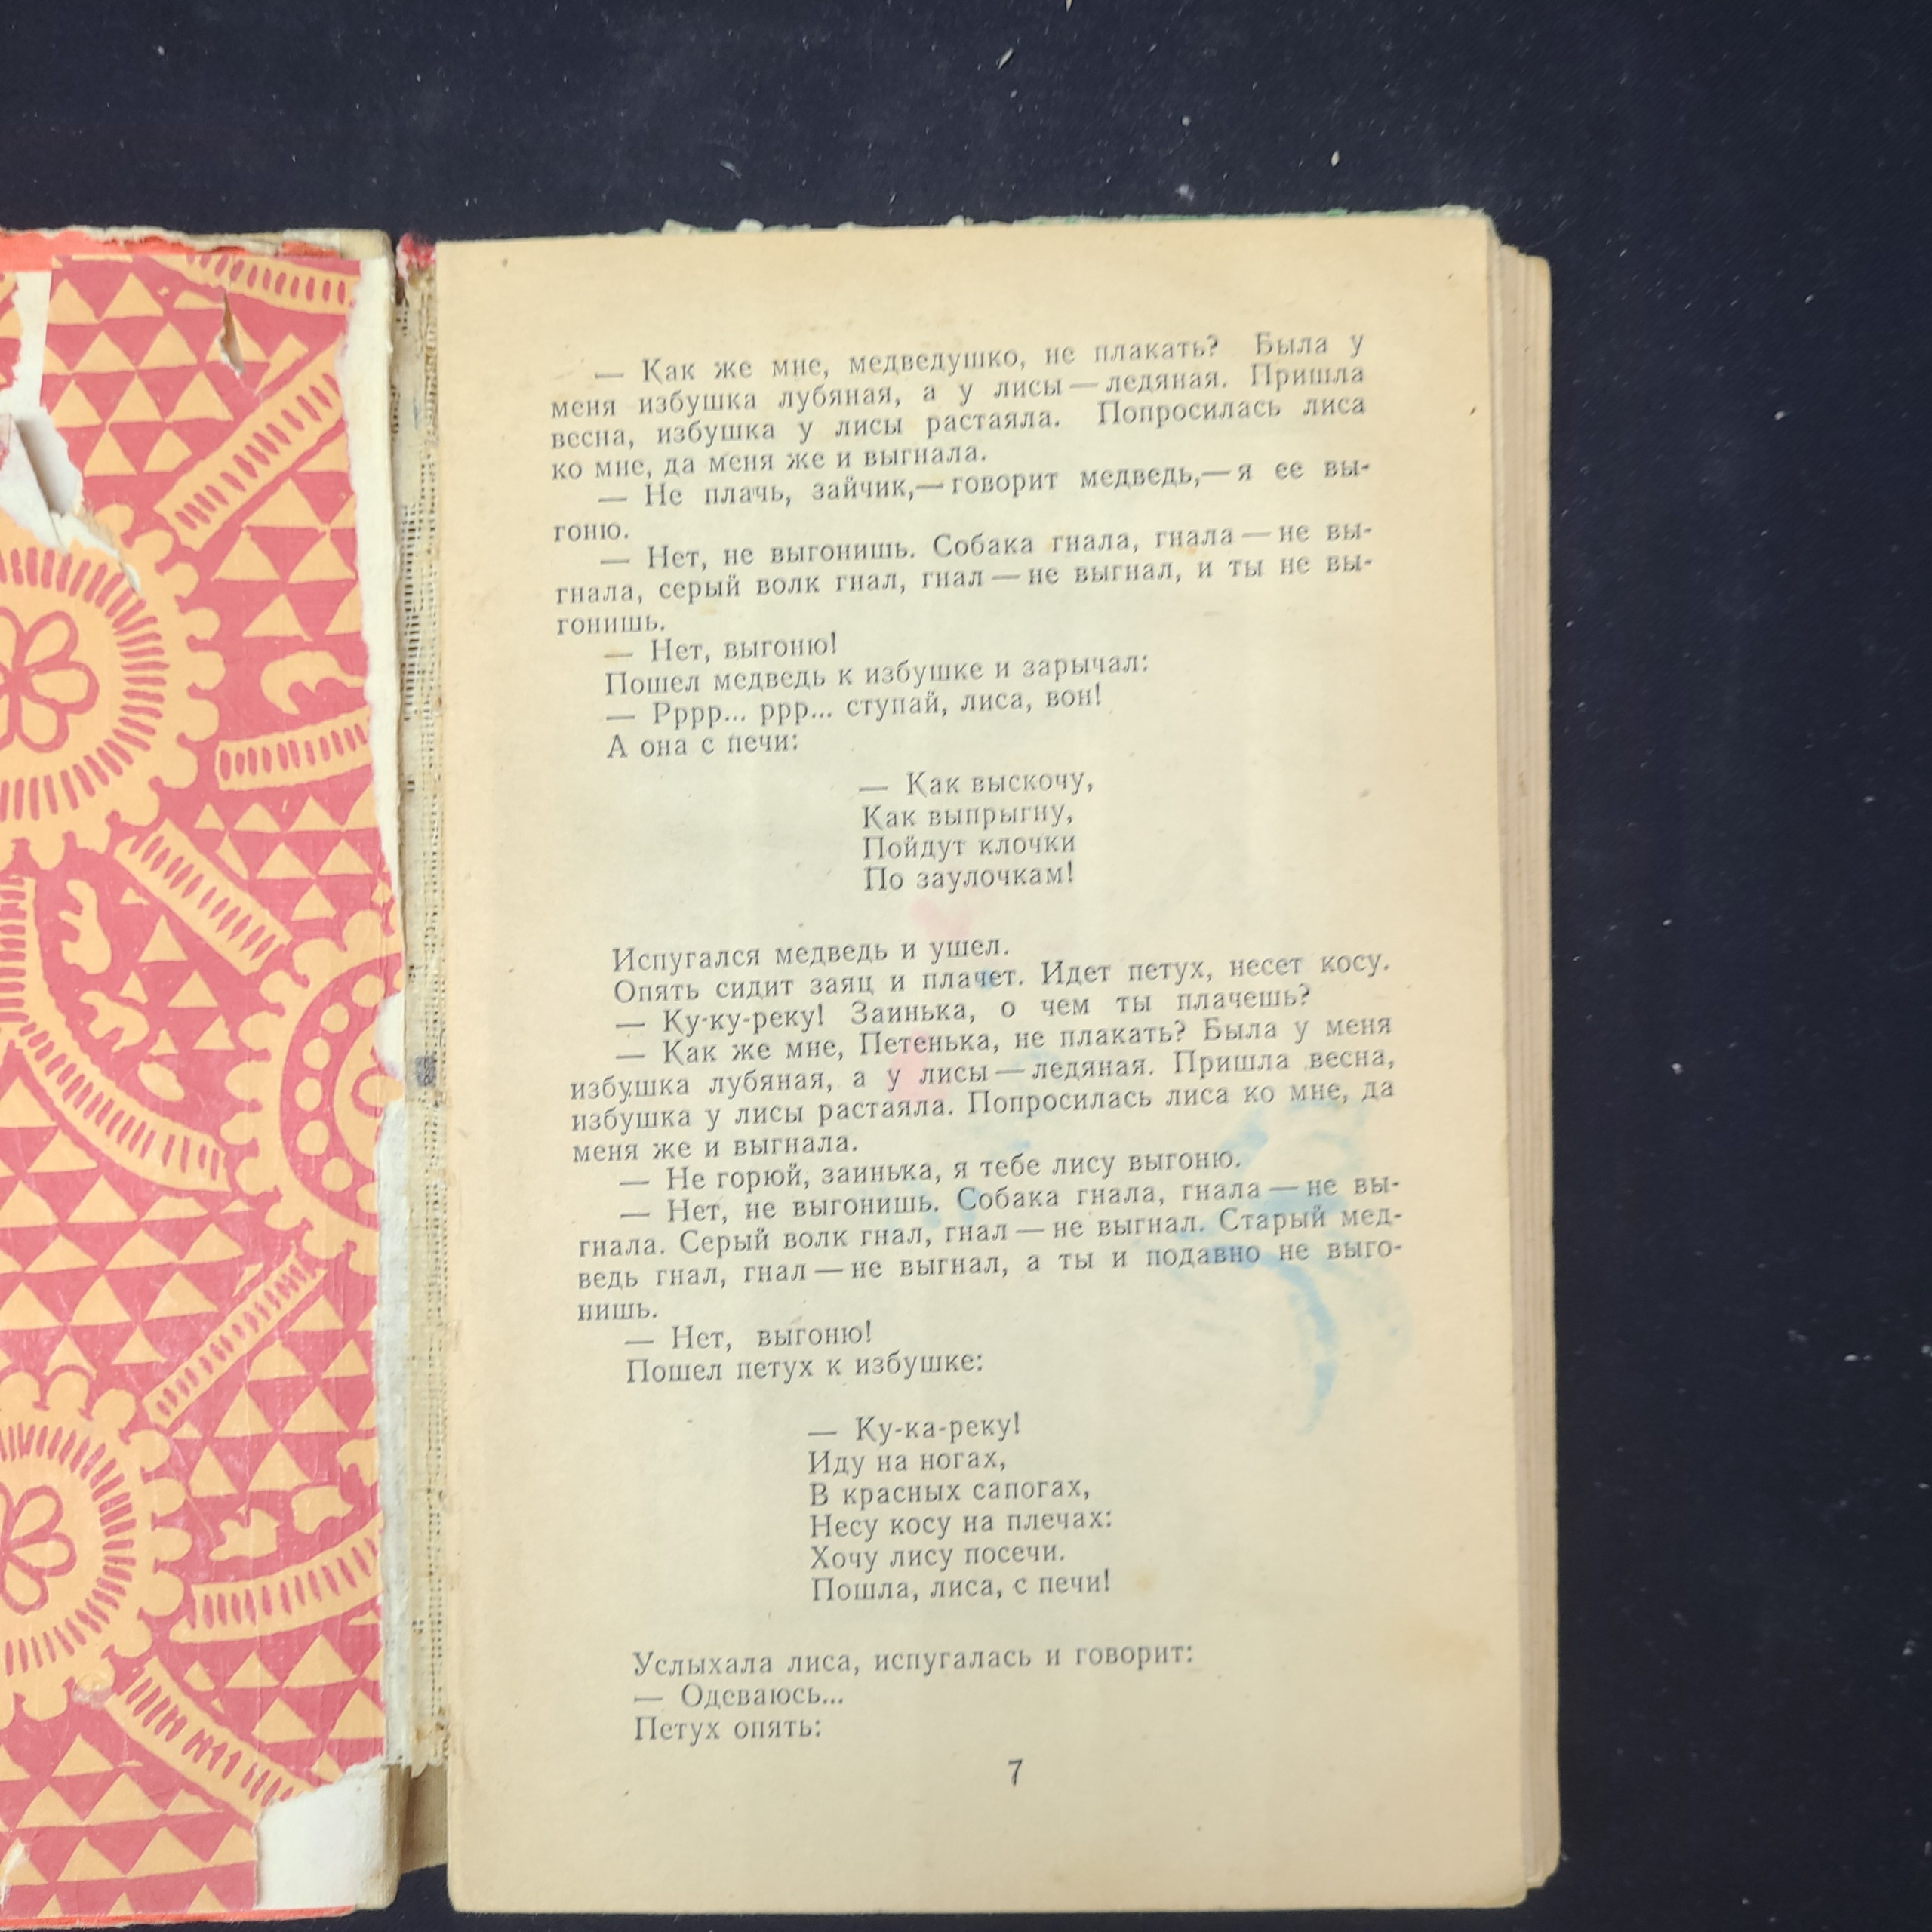 — Как же мне, медведушко, не плакать? Была у
меня избушка лубяная, а у лисы — ледяная. Пришла
весна, избушка у лисы растаяла. Попросилась лиса
ко мне, да меня же и выгнала.
— Не плачь, зайчик,— говорит медведь,— я ее вы-
гоню.
— Нет, не выгонишь. Собака гнала, гнала — не вы-
гнала, серый волк гнал, гнал — не выгнал, и ты не вы-
гонишь.
— Нет, выгоню!
Пошел медведь к избушке и зарычал:
— Рррр... ррр... ступай, лиса, вон!
А она с печи:
— Как выскочу,
Как выпрыгну,
Пойдут клочки
По заулочкам!
Испугался медведь и ушел.
Опять сидит заяц и плачет. Идет петух, несет косу.
— Ку-ку-реку! Заинька, о чем ты плачешь?
— Как же мне, Петенька, не плакать? Была у меня
избушка лубяная, а у лисы — ледяная. Пришла весна,
избушка у лисы растаяла. Попросилась лиса ко мне, да
меня же и выгнала.
— Не горюй, заинька, я тебе лису выгоню.
— Нет, не выгонишь. Собака гнала, гнала — не вы-
гнала. Серый волк гнал, гнал — не выгнал. Старый мед-
ведь гнал, гнал — не выгнал, а ты и подавно не выго-
нишь.
— Нет, выгоню!
Пошел петух к избушке:
— Ку-ка-реку!
Иду на ногах,
В красных сапогах,
Несу косу на плечах:
Хочу лису посечи.
Пошла, лиса, с печи!
Услыхала лиса, испугалась и говорит:
— Одеваюсь...
Петух опять:
7